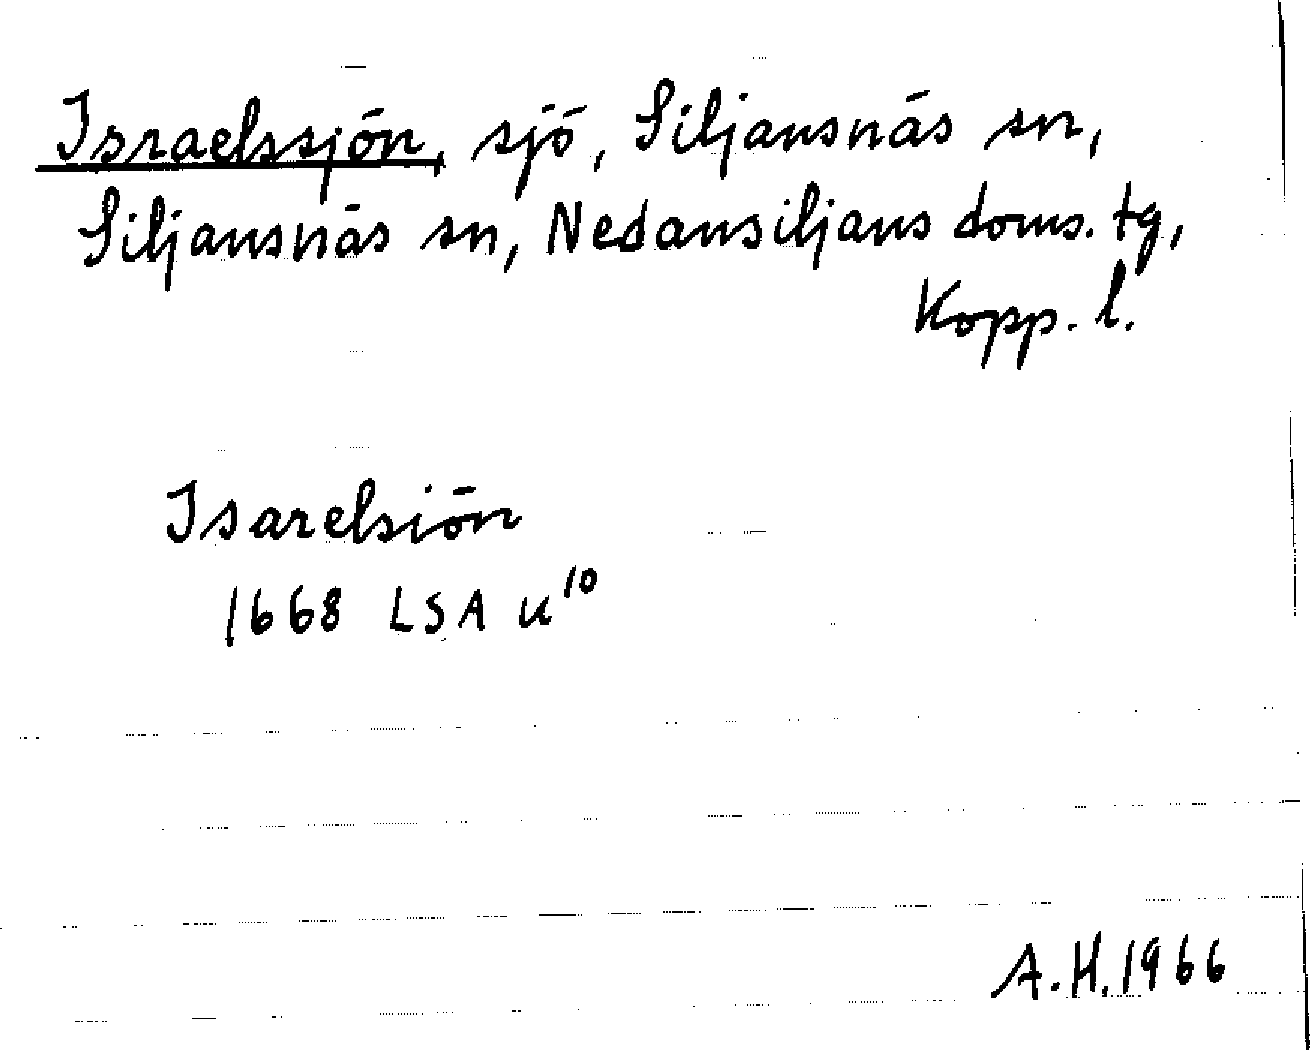 Israelssjön, sjö, Siljansnäs sn,
Siljansnäs sn, Nedansiljans doms. tg,
Kopp. l.
Isarelsiön
1668 LSA U¹⁰
A.H. 1966